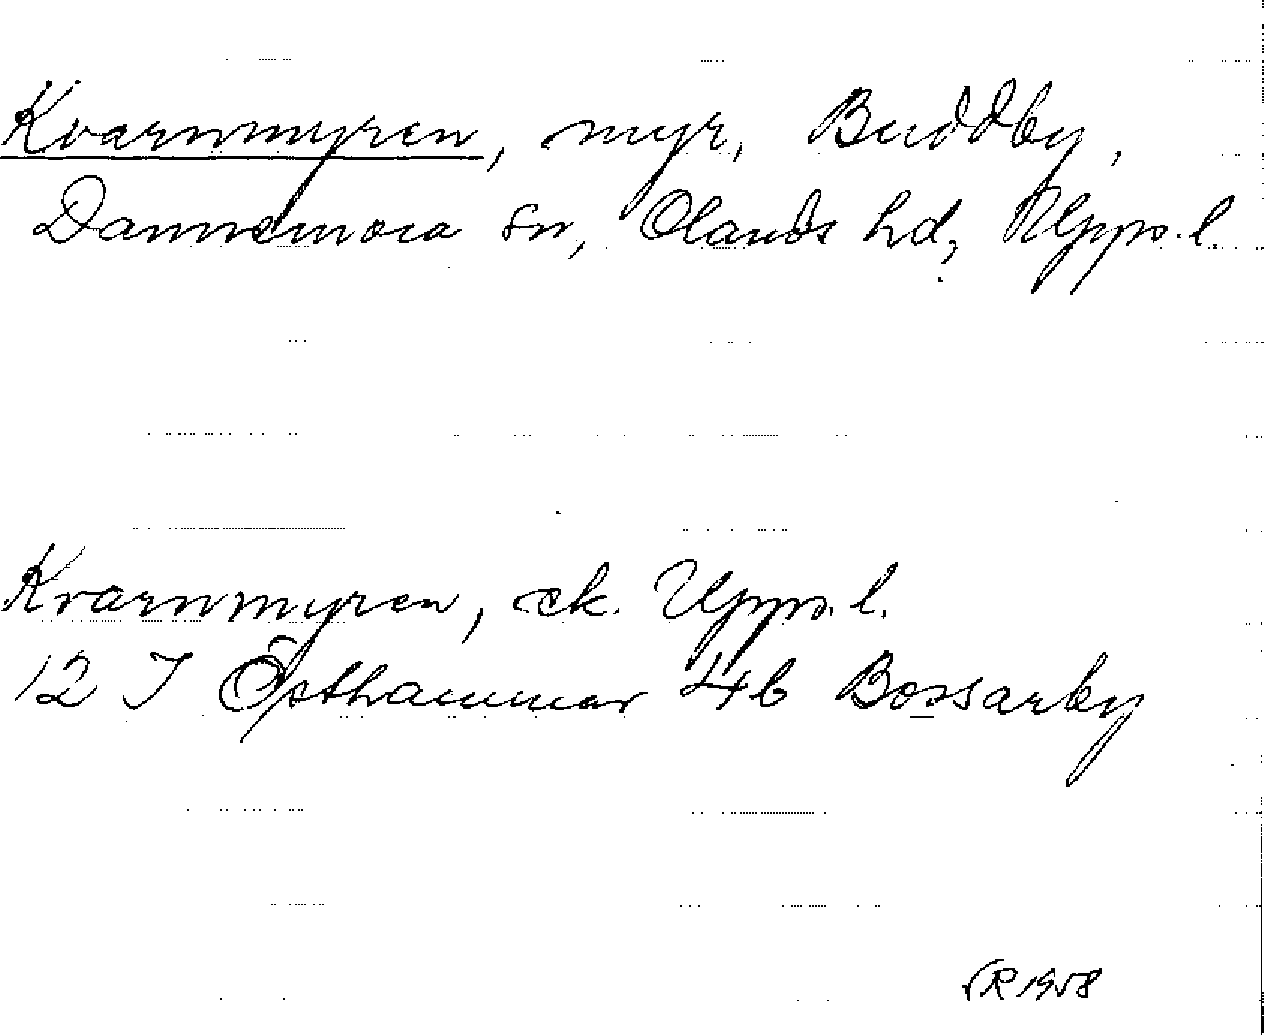 Kvarnmyren, myr, Buddby,
Dannemora sn, Olands hd, Upps.l.
Kvarnmyren, ek. Upps.l.
12 I Östhammar 4b Bossarby
1958